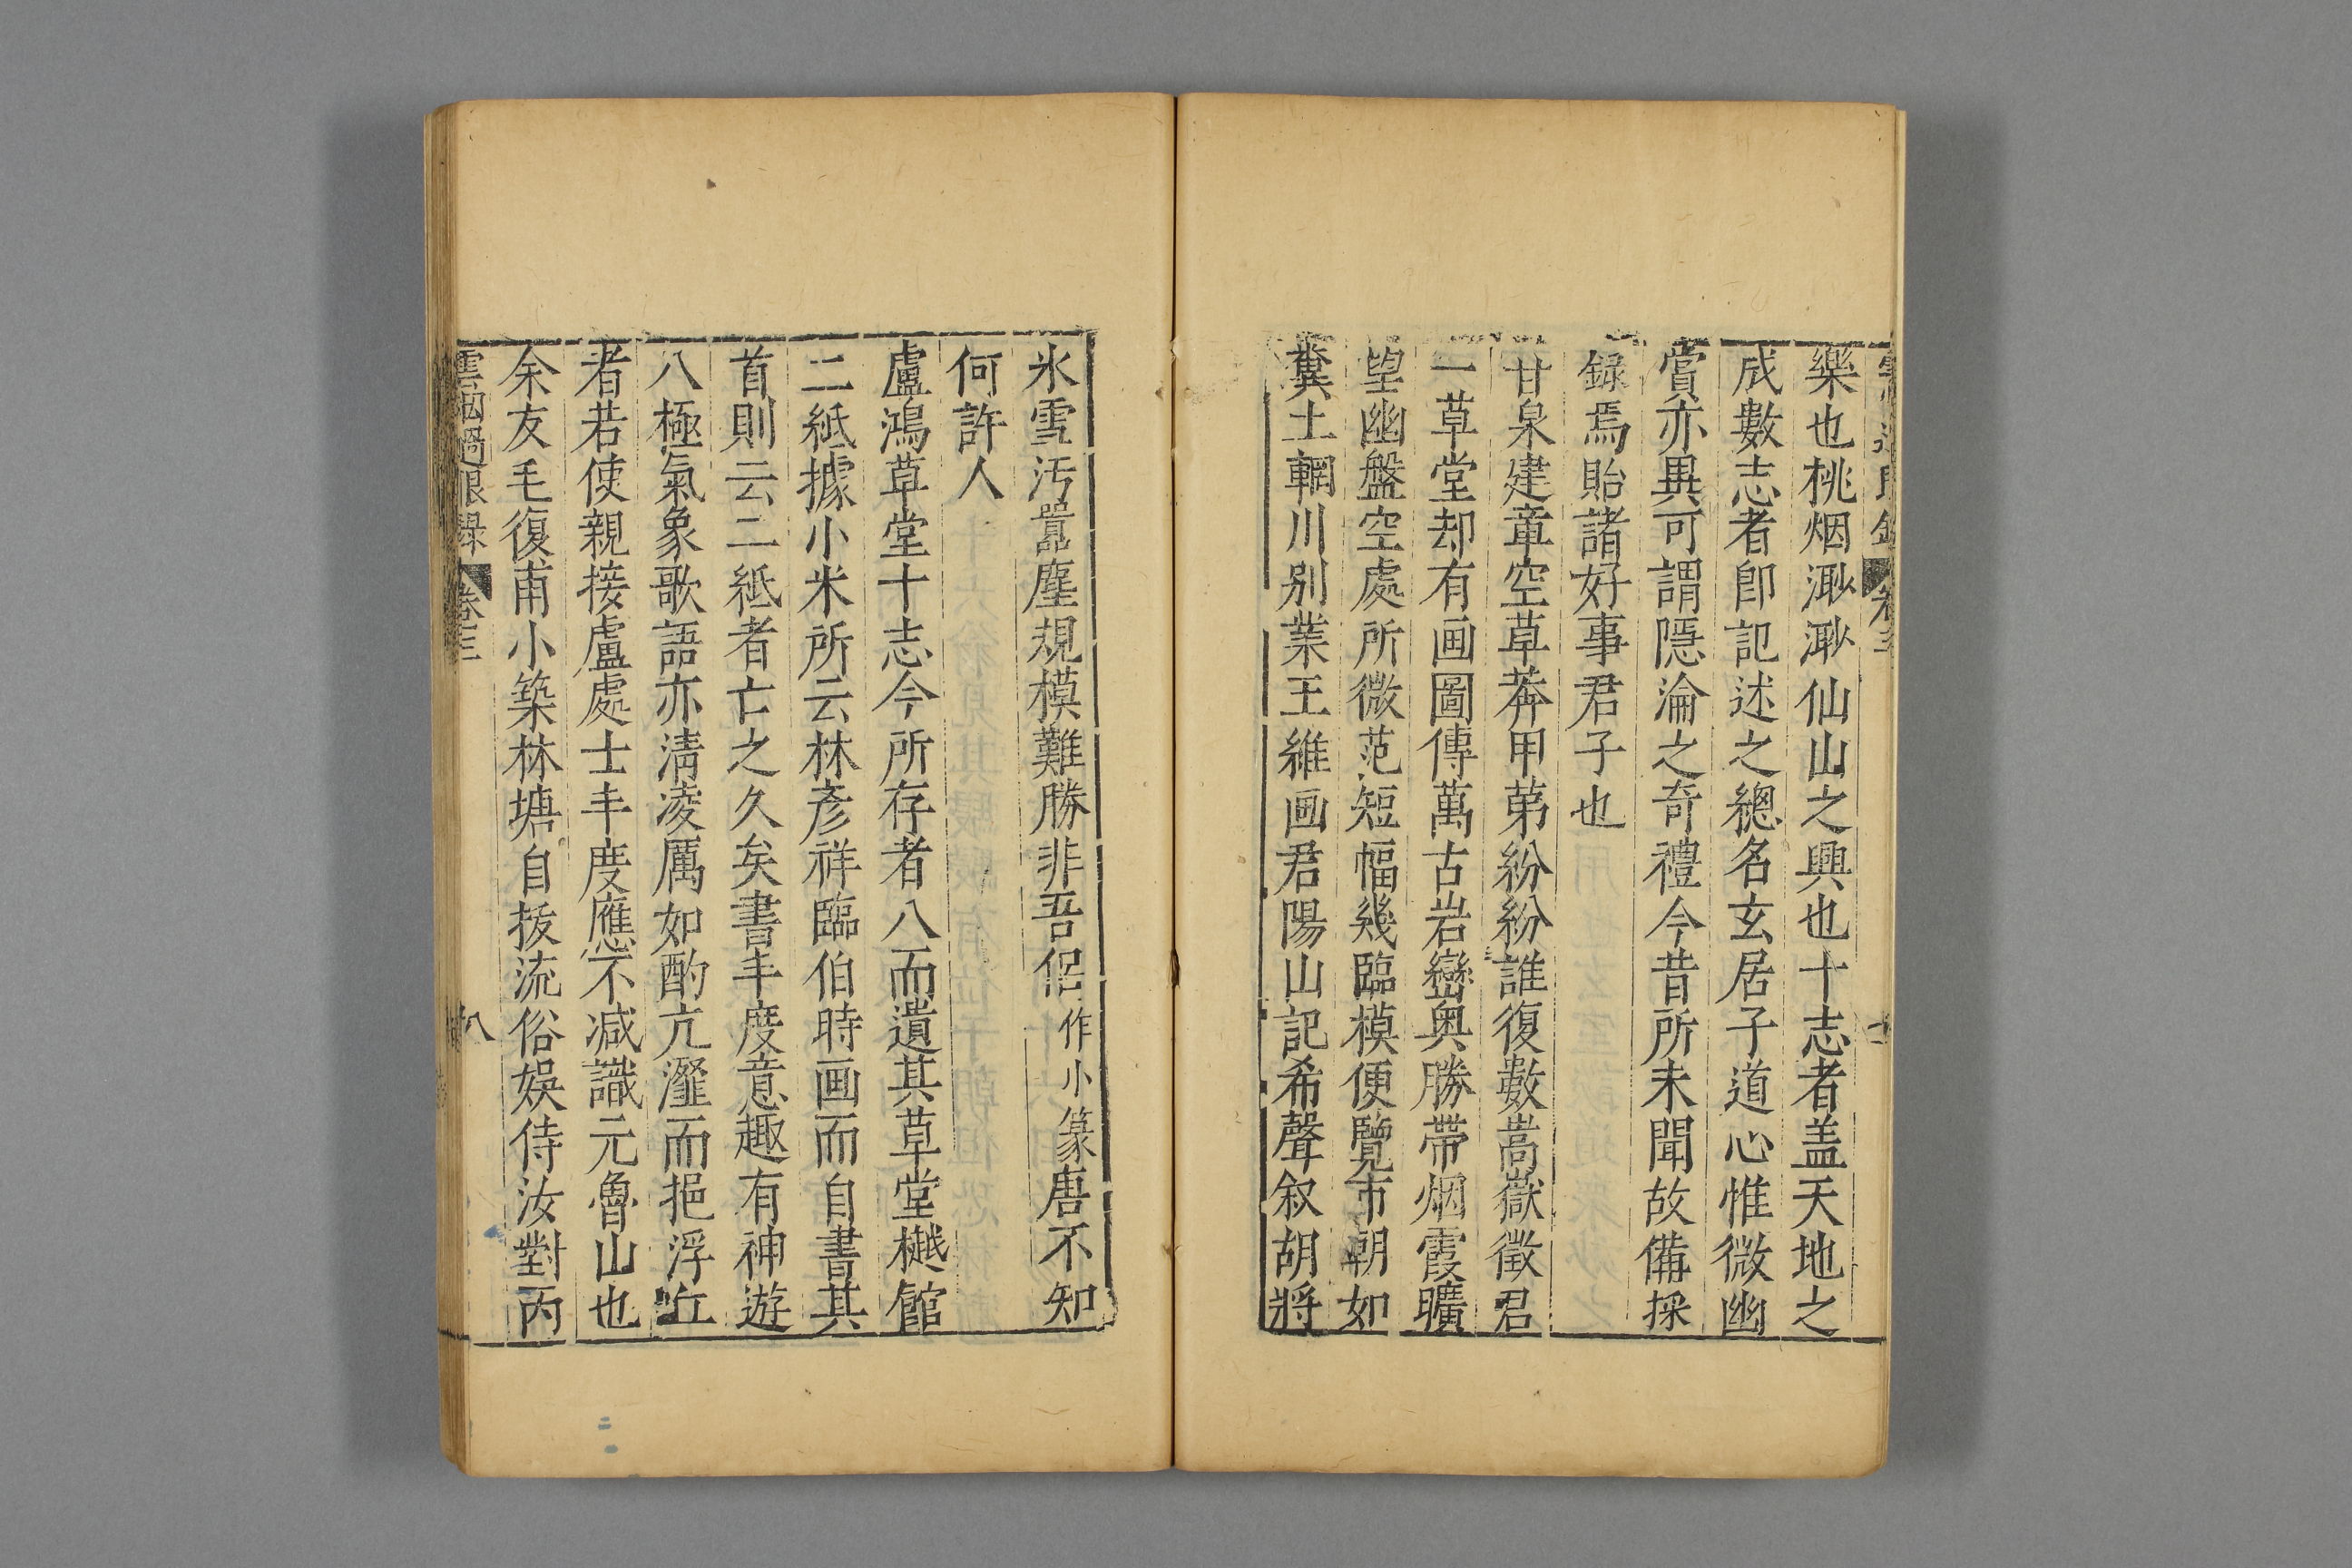 樂也桃烟渺渺仙山之興也十志者盖天地之
成數志者卽記述之總名玄居子道心惟微幽
賞亦異可謂隱淪之奇禮今昔所未聞故備採
錄焉貽諸好事君子也
甘泉建章空草莽甲第紛紛誰復數嵩嶽徵君
一草堂却有画圖傳萬古岩巒奥勝帶烟霞曠
望幽盤空處所微范短幅幾臨模便覽市朝如
糞土輞川别業王維画君陽山記希聲叙胡將
氷雪汚嚣塵規模難勝非吾侣作小篆唐不知
何許人
盧鴻草堂十志今所存者八而遺其草堂樾館
二紙據小米所云林彥祥臨伯時画而自書其
首則云二紙者亡之久矣書丰度意趣有神遊
八極氣象歌語亦淸凌厲如酌亢瀣而挹浮丘
者若使親接盧處士丰度應不减識元魯山也
余友毛復甫小築林塘自拔流俗娛侍汝對丙
雲烟過眼録 卷三 八